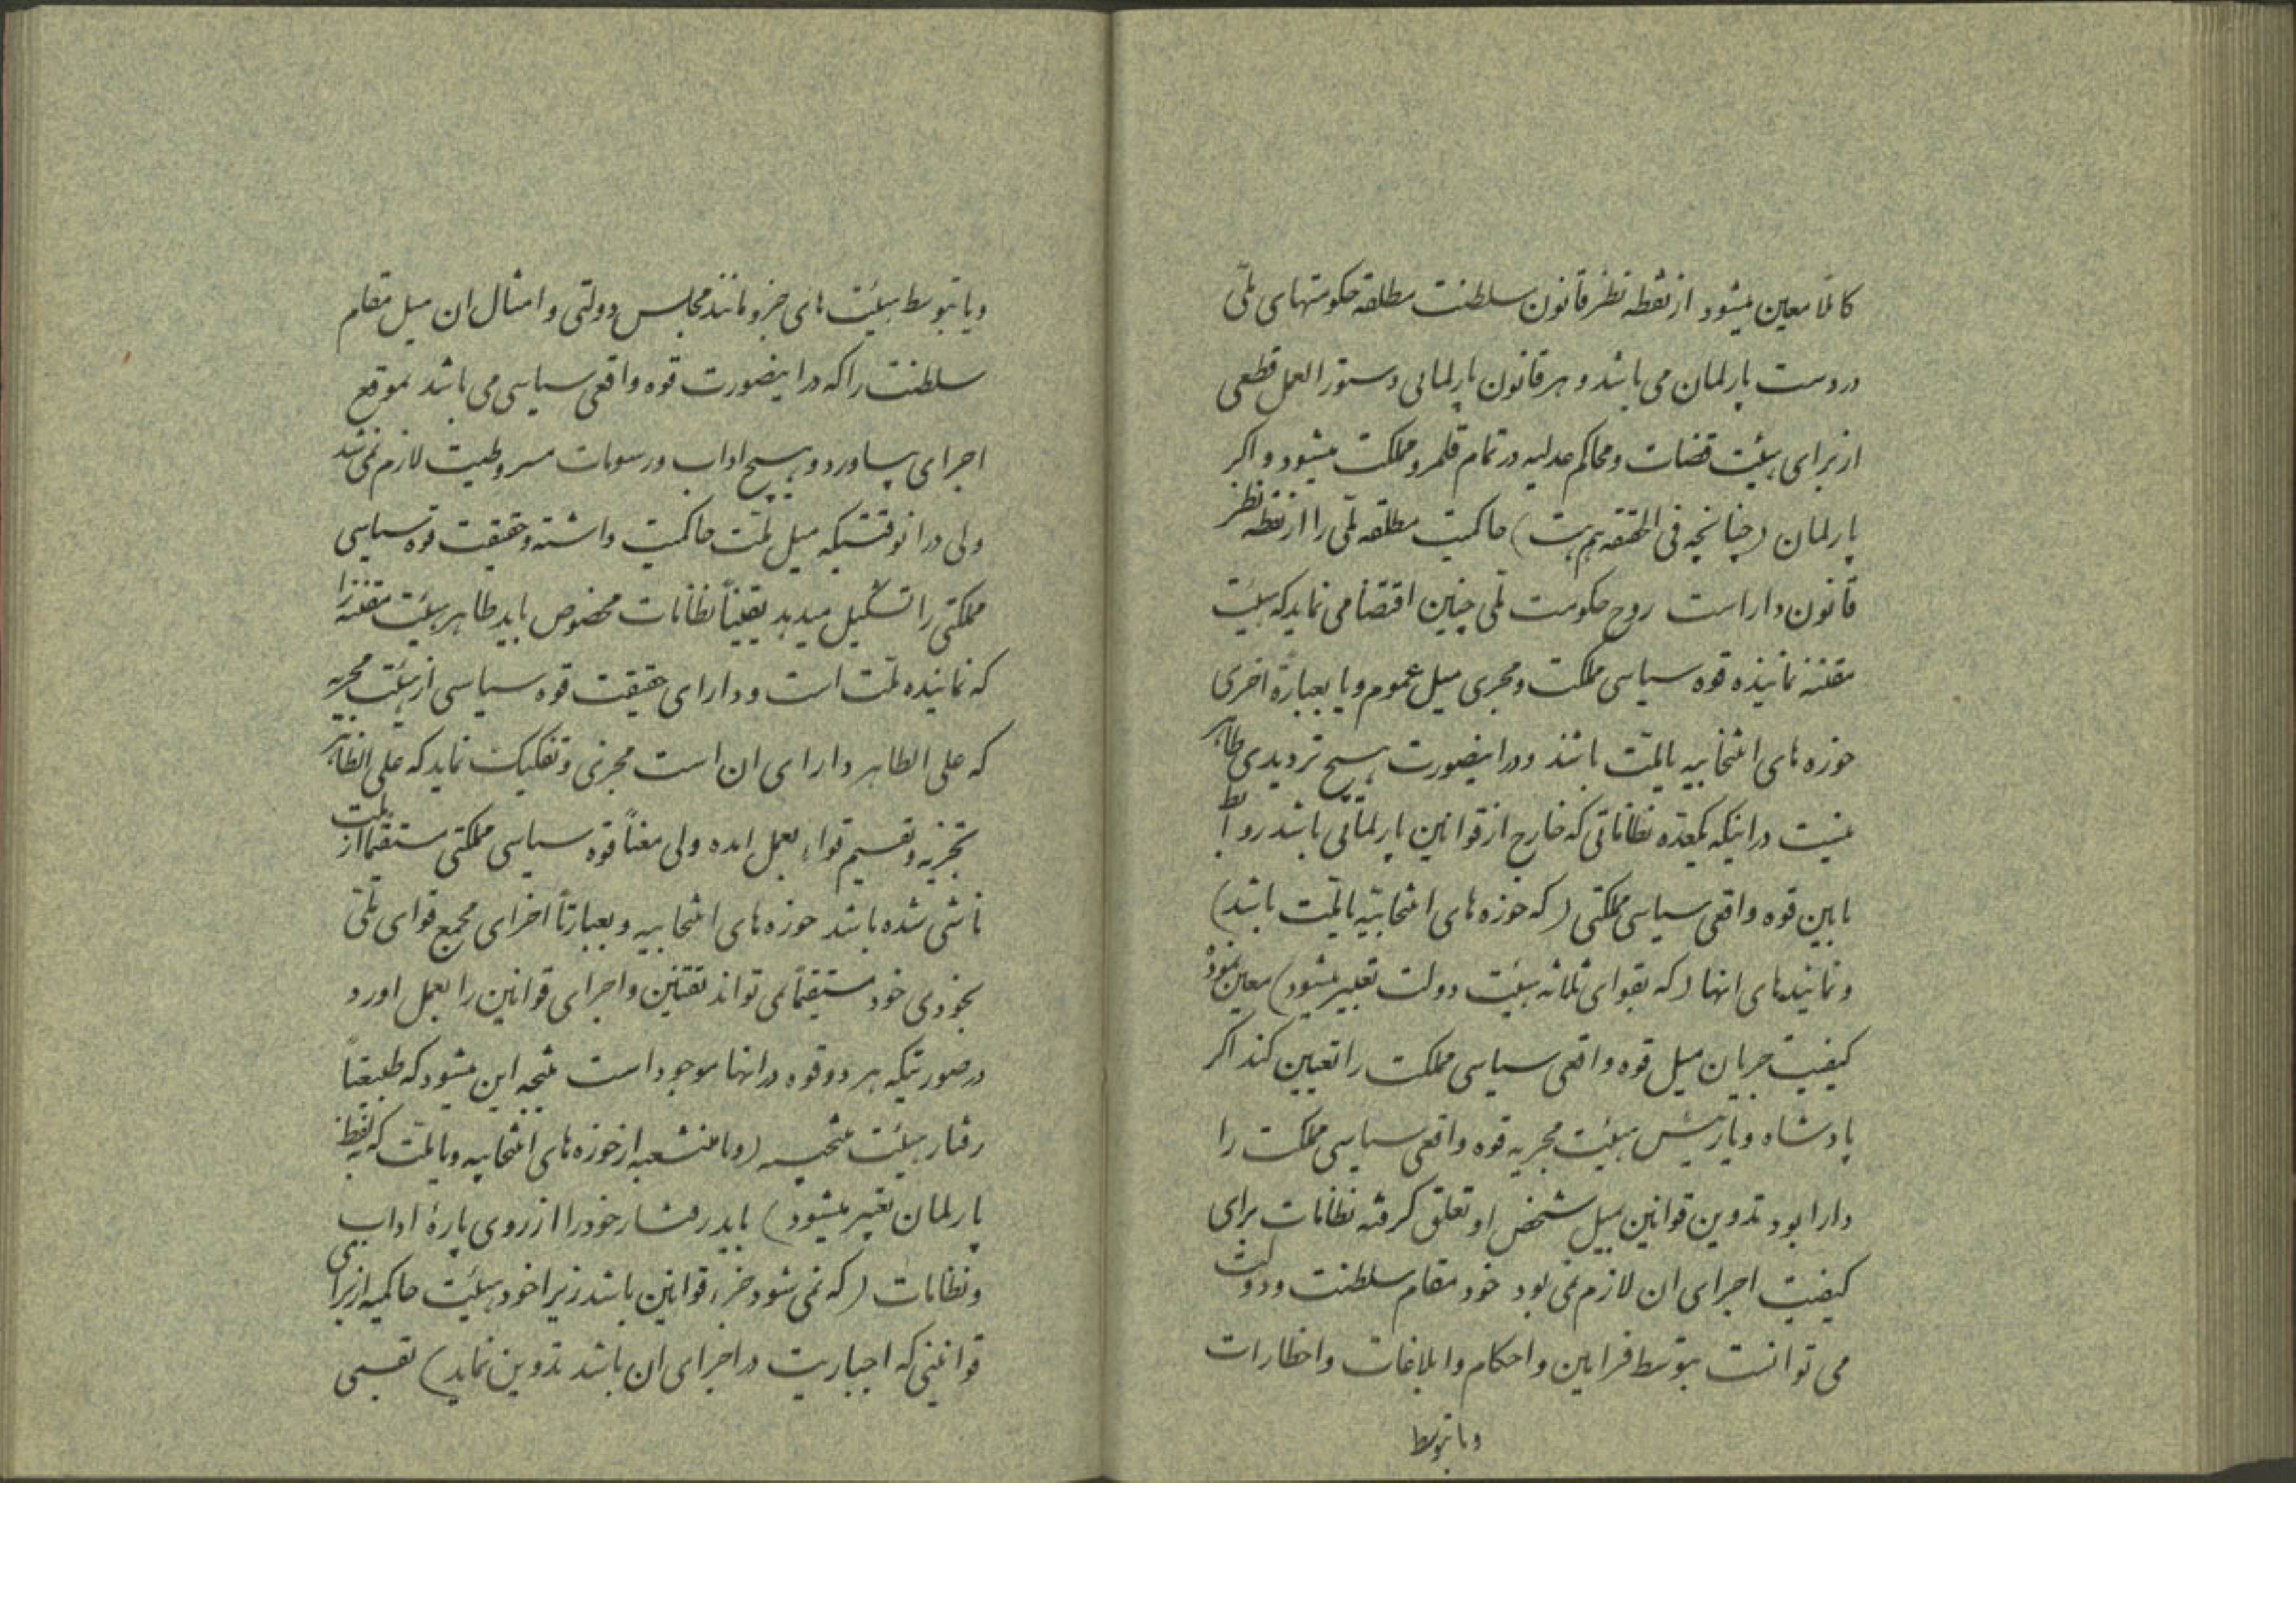 کاملا معین میشود از نقطه نظر قانون سلطنت مطلقه حکومتهای ملّی
در دست پارلمان می باشد و هر قانون پارلمانی دستور العمل قطعی
از برای هیئت قضات و محاکم عدلیه در تمام قلمرو مملکت میشود و اکر
پارلمان (چنانچه فی الحقیقه هم هست) حاکمیت مطلقه ملّی را از نقطه نظر
قانون داراست روح حکومت ملّی چنین اقتضا می نماید که هیئت
مقننه نماینده قوه سیاسی مملکت و مجری میل عموم و یا بعبارة اخری
حوزه های انتخابیه یا ملّت باشند و در اینصورت هیچ تردیدی ظاهر
نیست در اینکه یکعدّه نظاماتی که خارج از قوانین پارلمانی باشد روابط
مابین قوه واقعی سیاسی مملکتی (که حوزه های انتخابیّه یا ملّت باشد)
و نمایندهای انها (که بقوای ثلاثه هیئت دولت تعبیر میشود) معین نموده
کیفیت جریان میل قوه واقعی سیاسی مملکت را تعیین کند اکر
پادشاه و یا رئیس هیئت مجریه قوه واقعی سیاسی مملکت را
دارا بود تدوین قوانین بمیل شخص او تعلق کرفته نظامات برای
کیفیت اجرای ان لازم نمی بود خود مقام سلطنت و دولت
می توانست بتوسط فرامین و احکام و ابلاغات و اخطارات
و یا بتوسط
و یا بتوسط هیئت های جزو مانند مجلس دولتی و امثال ان میل مقام
سلطنت را که در اینصورت قوه واقعی سیاسی می باشد بموقع
اجرای بیاورد و هیچ اداب و رسومات مشروطیت لازم نمی شد
ولی در انوقتیکه میل ملّت حاکمیت داشته و حقیقت قوه سیاسی
مملکتی را تشکیل میدهد یقیناً نظامات مخصوص باید ظاهر هیئت مقننه را
که نماینده ملّت است و دارای حقیقت قوه سیاسی از هیئت مجریه
که علی الظاهر دارای ان است مجزی و تفکیک نماید که علی الظاهر
تجزیه و تقسیم قواء بعمل امده ولی معناً قوه سیاسی مملکتی مستقیماً از ملت
ناشی شده باشد حوزه های انتخابیه و بعبارتاً اخرای مجمع قوای ملّتی
بخودی خود مستقیماً نمی تواند تقنین و اجرای قوانین را بعمل اورد
در صورتیکه هر دو قوه در انها موجود است نتیجه این میشود که طبیعتاً
رفتار هیئت منتخبه (و یا منشعبه از حوزه های انتخابیه و یا ملّت که بلفظ
پارلمان تعبیر میشود) باید رفتار خود را از روی پارهٔ اداب
و نظامات (که نمی شود جزء قوانین باشد زیرا خود هیئت حاکمیه از برای
قوانینی که اجباریت در اجرای ان باشد تدوین نماید) تقسیمی